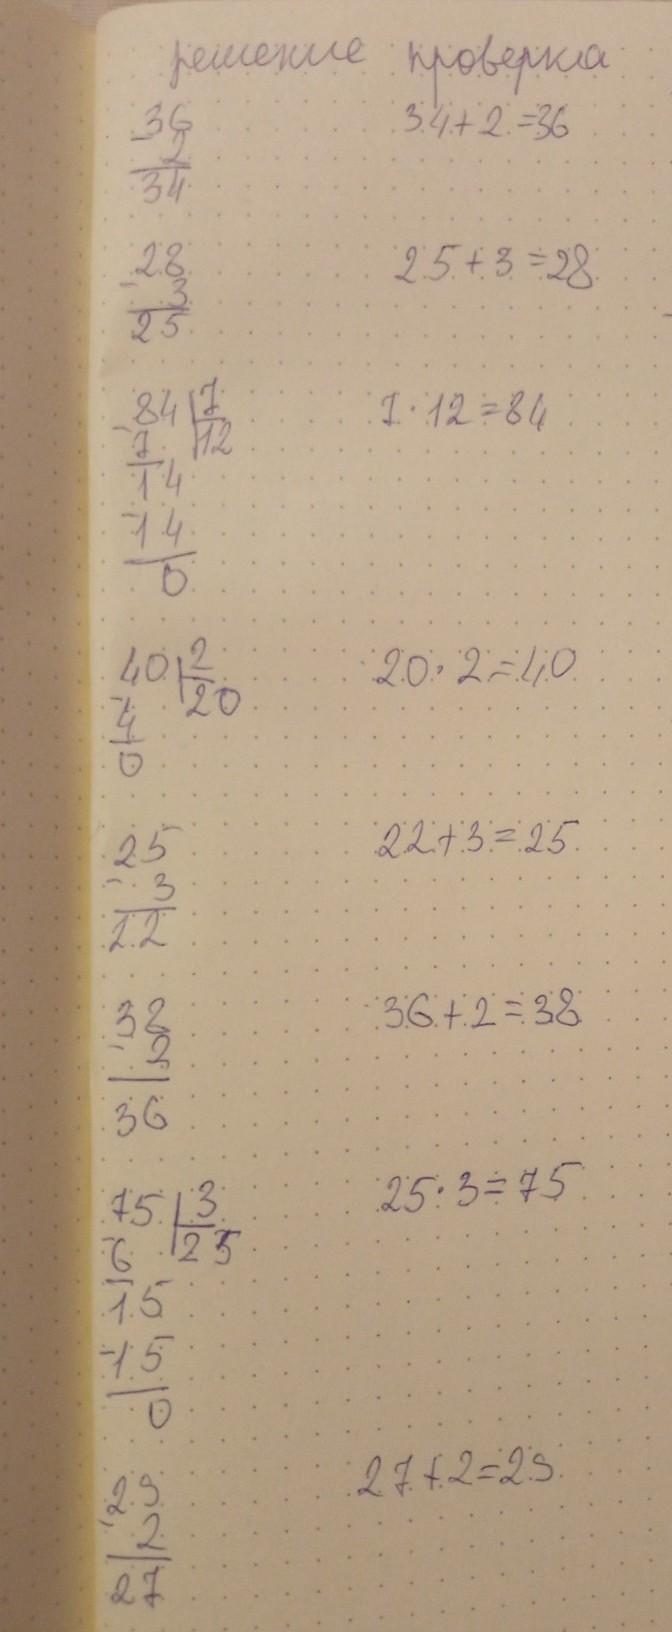 решение проверка
36
- 2
34
34+2=36
28
- 3
25
25+3=28
84 7
- 7 12
14
- 14
0
7·12=84
40 2
- 4 20
0
20·2=40
25
- 3
22
22+3=25
38
- 2
36
36+2=38
75 3
- 6 25
15
- 15
0
25·3=75
29
- 2
27
27+2=29